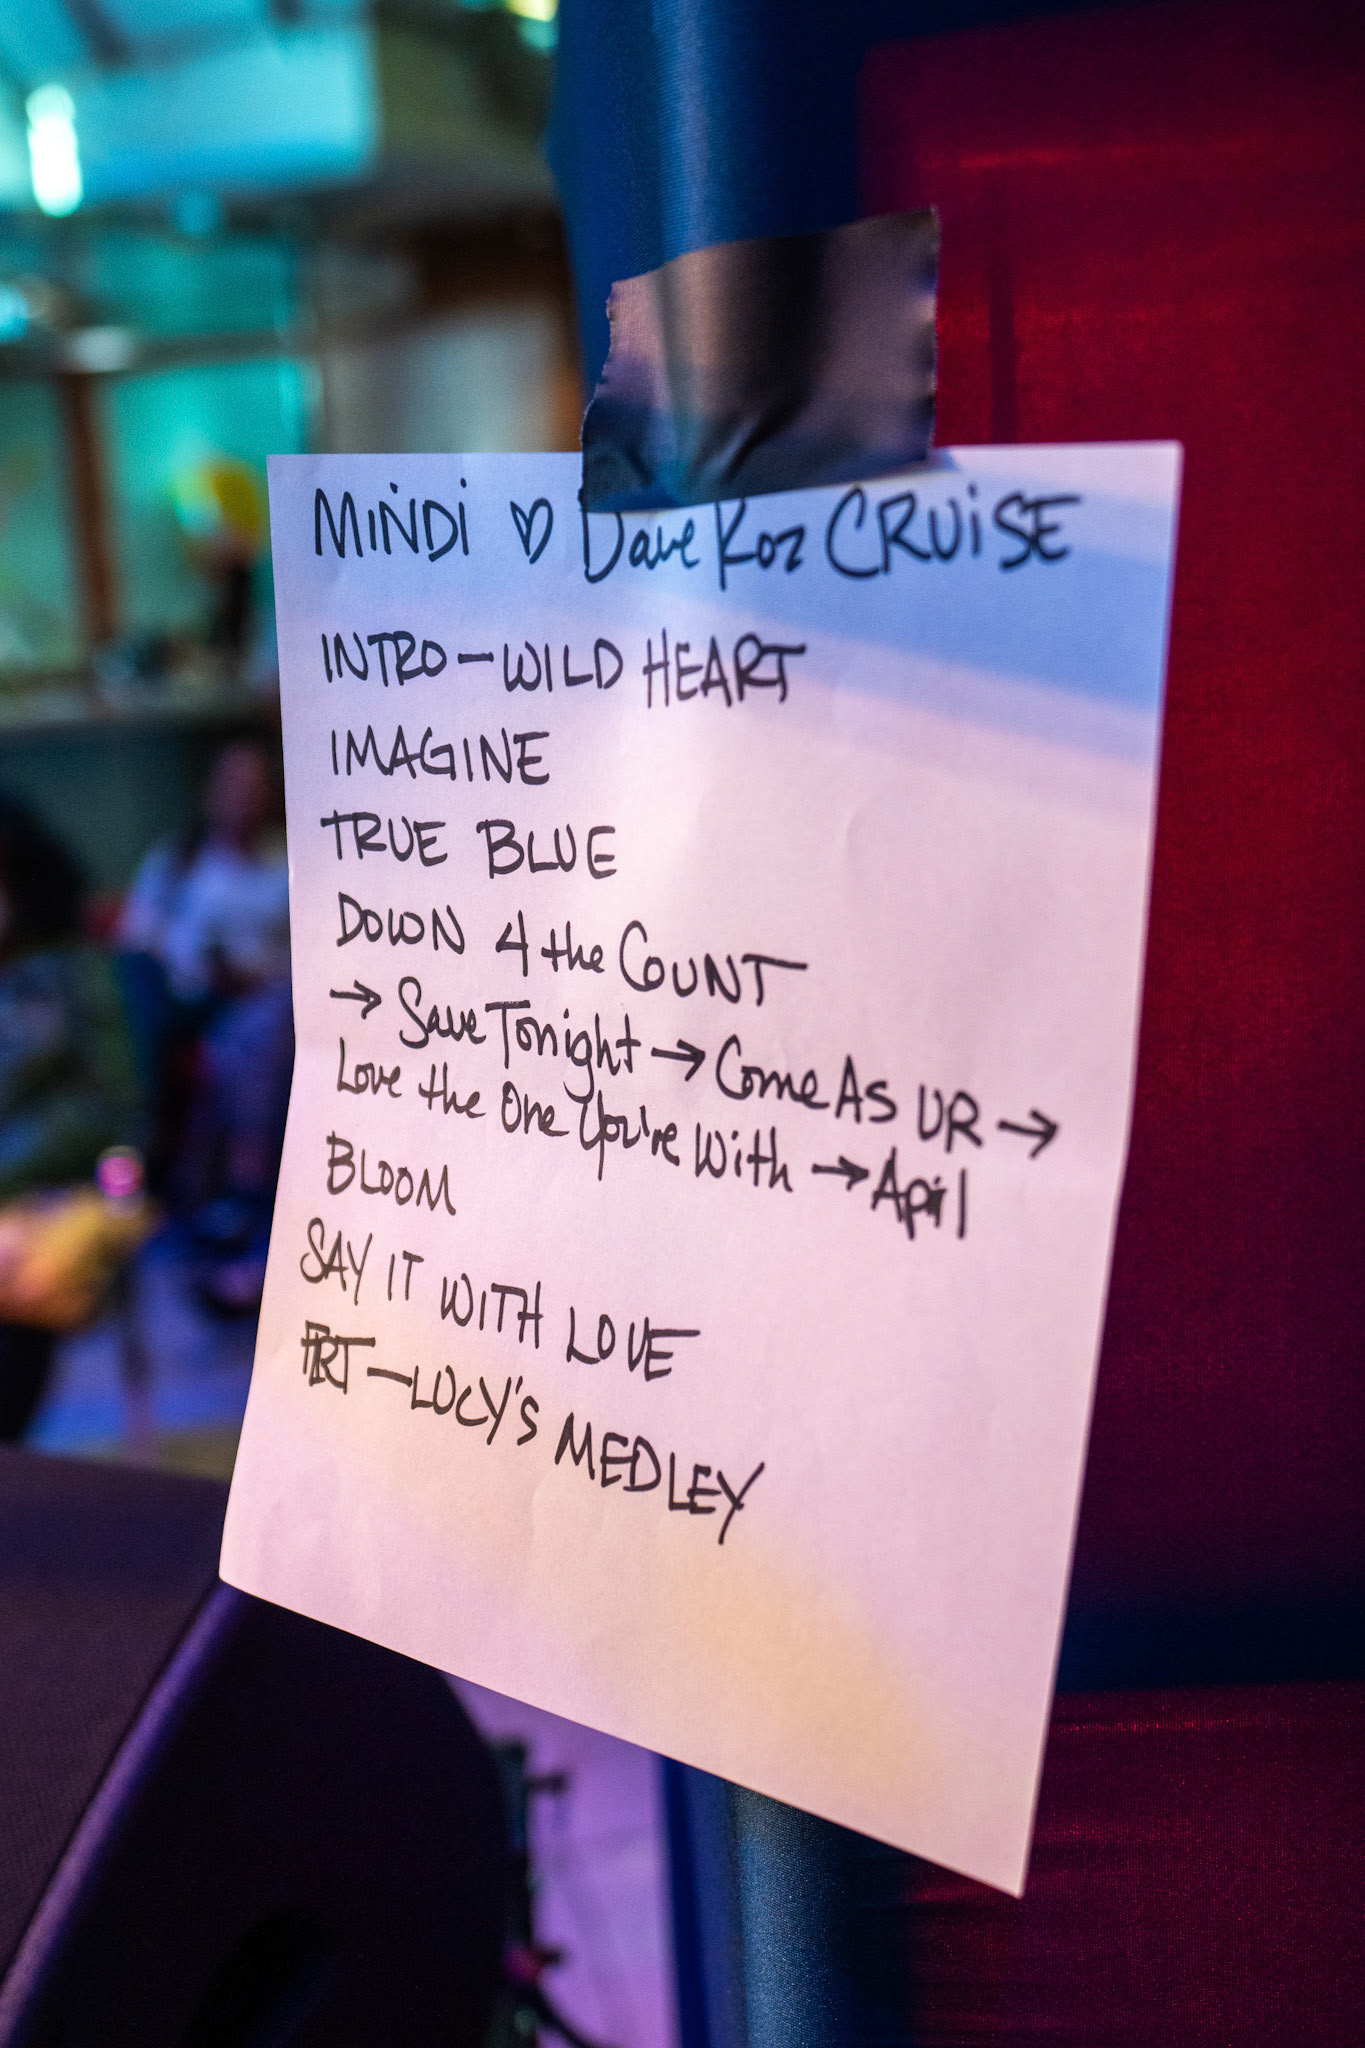 MiNDi ♡ Dave Koz CRUiSE
INTRO—WILD HEART
IMAGINE
TRUE BLUE
DOWN 4 the COUNT
→ Save Tonight → Come As UR →
Love the One You're With → April
BLOOM
SAY IT WITH LOVE
—LUCY'S MEDLEY